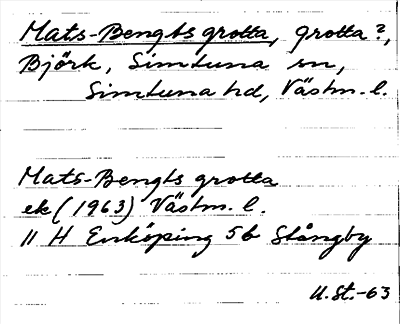 Mats-Bengts grotta, grotta?,
Björk, Simtuna sn,
Simtuna hd, Västm. l.
Mats-Bengts grotta
ek (1963) Västm. l.
11 H Enköping 5b Stångby
U.St.-63